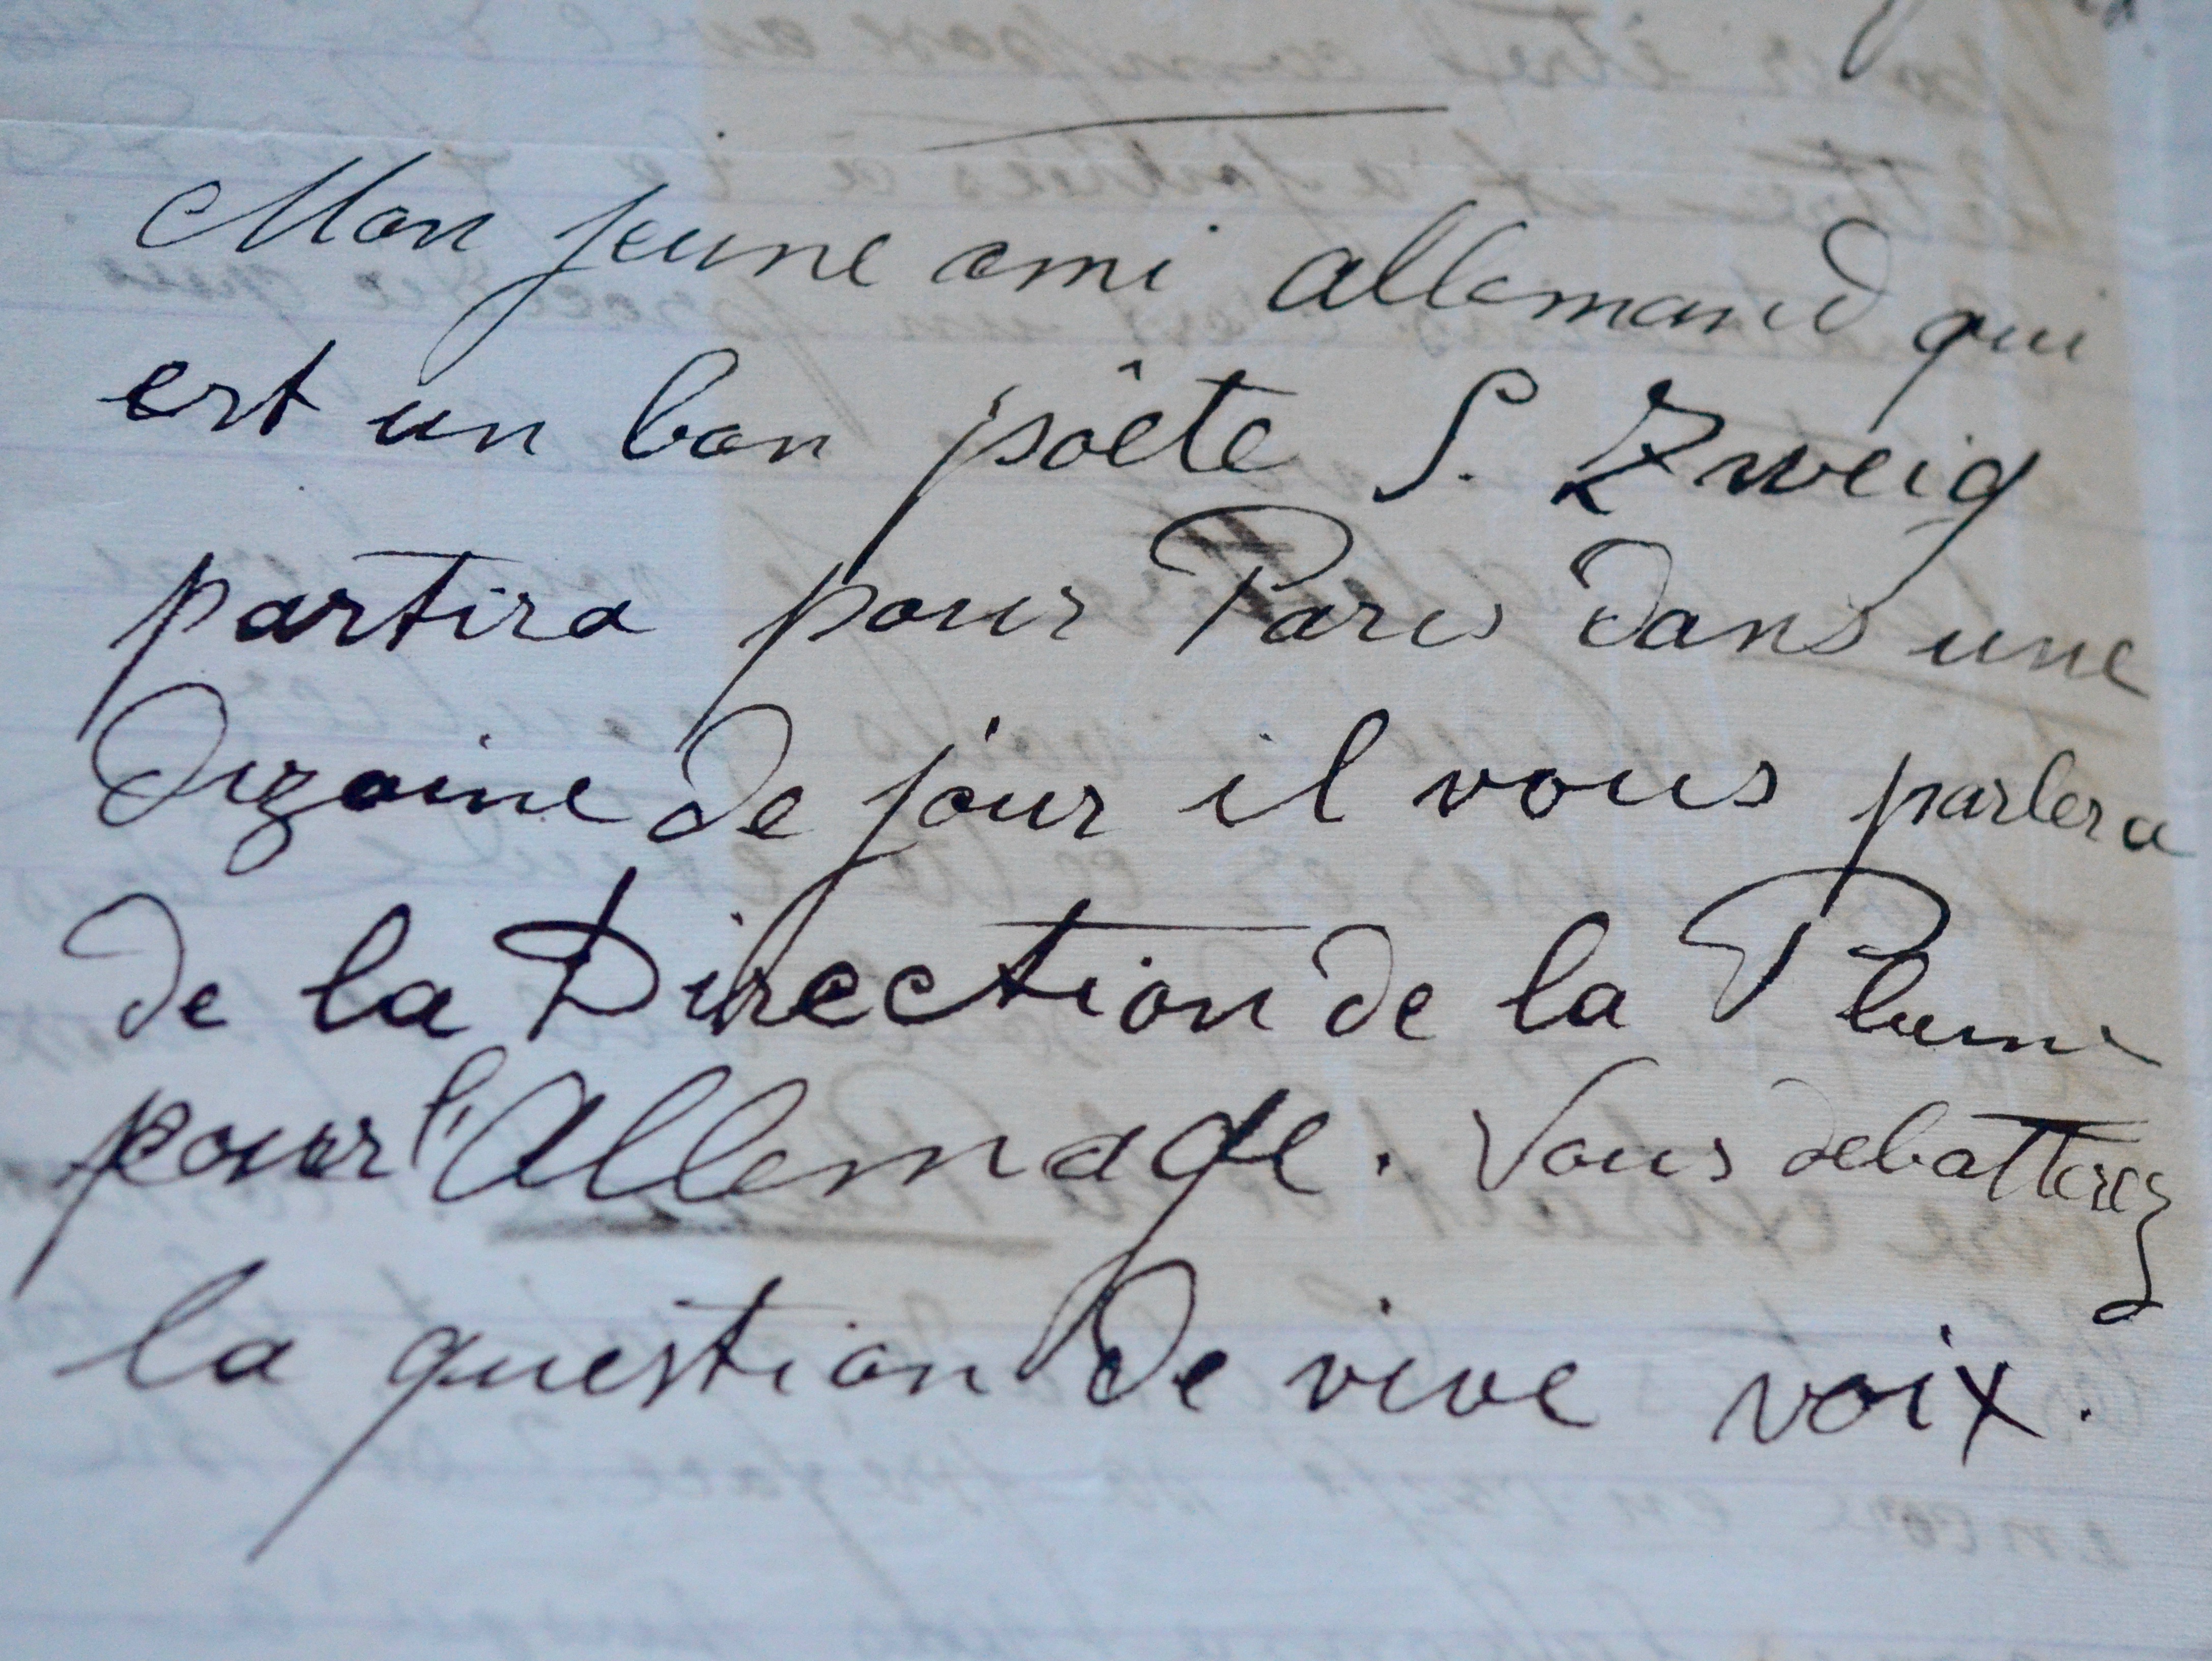 Mon jeune ami allemand qui
est un bon pôete S. Zweig
partira pour Paris dans une
dizaine de jour il vous parlera
de la Direction de la Plume
pour l'Allemage. Vous debatterez
la question de vive voix.